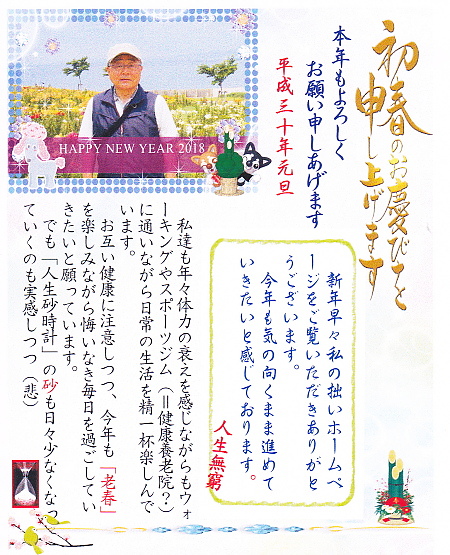 初春のお慶びを
申し上げます
本年もよろしく
お願い申しあげます
平成三十年元旦
HAPPY NEW YEAR 2018
新年早々私の拙いホームペ
ージをご覧いただきありがと
うございます。
今年も気の向くまま進めて
いきたいと感じております。
人生無窮
私達も年々体力の衰えを感じながらもウォ
ーキングやスポーツジム（＝健康養老院？）
に通いながら日常の生活を精一杯楽しんで
います。
お互い健康に注意しつつ、今年も「老春」
を楽しみながら悔いなき毎日を過ごしてい
きたいと願っています。
でも「人生砂時計」の砂も日々少なくなっ
ていくのも実感しつつ（悲）